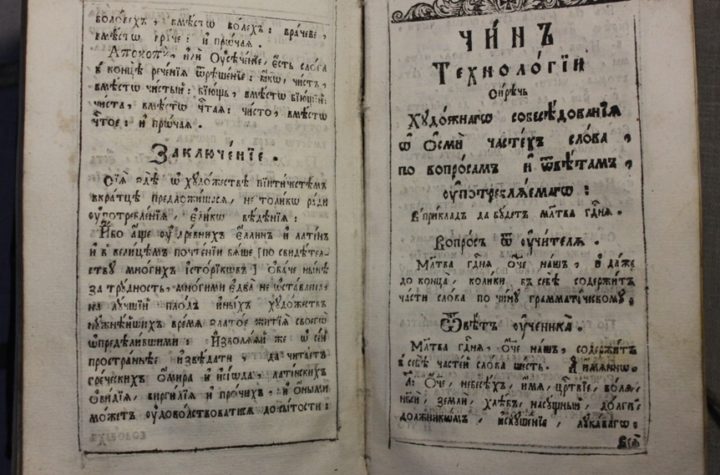 воловехъ, вмѣстѡ волехъ: врачеве,
вмѣстѡ врачє: и прѡчаѧ.
Апокопи, или Оусѣченїе, есть слога
в концѣ реченїѧ ѿрѣшенїе: ꙗкѡ, чистъ,
вмѣстѡ чистый: вїющь, вмѣстѡ вїющїй:
чиста, вмѣстѡ чтаѧ: чисто, вмѣстѡ
чтое: и прѡчаѧ.
Заключе́нїе.
Сїѧ здѣ ѡ художествѣ пїитичистѣм
вкратцѣ предложишасѧ, не толикѡ ради
оупотребленїѧ, єликѡ вѣденїѧ:
Ибо аще оу древнихъ Еллин и латїн
и в велицѣм почтенїи бѧше [по свидѣтел
ству многихъ їсторїкѡвъ] Обаче нынѣ
за трудность, многими едва не ѡставлена,
на лучшїй плодъ иныхъ художествъ
нужнѣйшихъ время златое житїѧ своегѡ
ѡпредѣлившими: Изволѧй же ѡ сем
пространнѣе извѣдати, да читаетъ
греческихъ ѻмира и исїѡда, латинскихъ
ѻвидїа, виргилїа и прочихъ, и ѻными
можетъ оудоволствоватисѧ до сытости:
ЧИ́НЪ
Техноло́гїи
Сирѣчь
Художнагѡ собесѣдованїѧ
ѡ Осми частехъ слова,
по вопросам и ѿвѣтам,
оупотреблѧемагѡ:
В приклад да будетъ мл҃тва гд҇нѧ.
Вопросъ ѿ оучителѧ.
Мл҃тва гд҇нѧ Оч҃е нашъ, и даже
до конца, колики въ себѣ содержитъ
части слова по чину грамматїческому;
Ѿвѣтъ оученика.
Мл҃тва гд҇нѧ Оч҃е нашъ, содержитъ
в себѣ частей слова шесть. А имѧннѡ.
Оч҃е, небесѣхъ, имѧ, царствїе, волѧ,
земли, хлѣбъ, насущный, долги,
должникѡмъ, искушенїе, лукавагѡ: